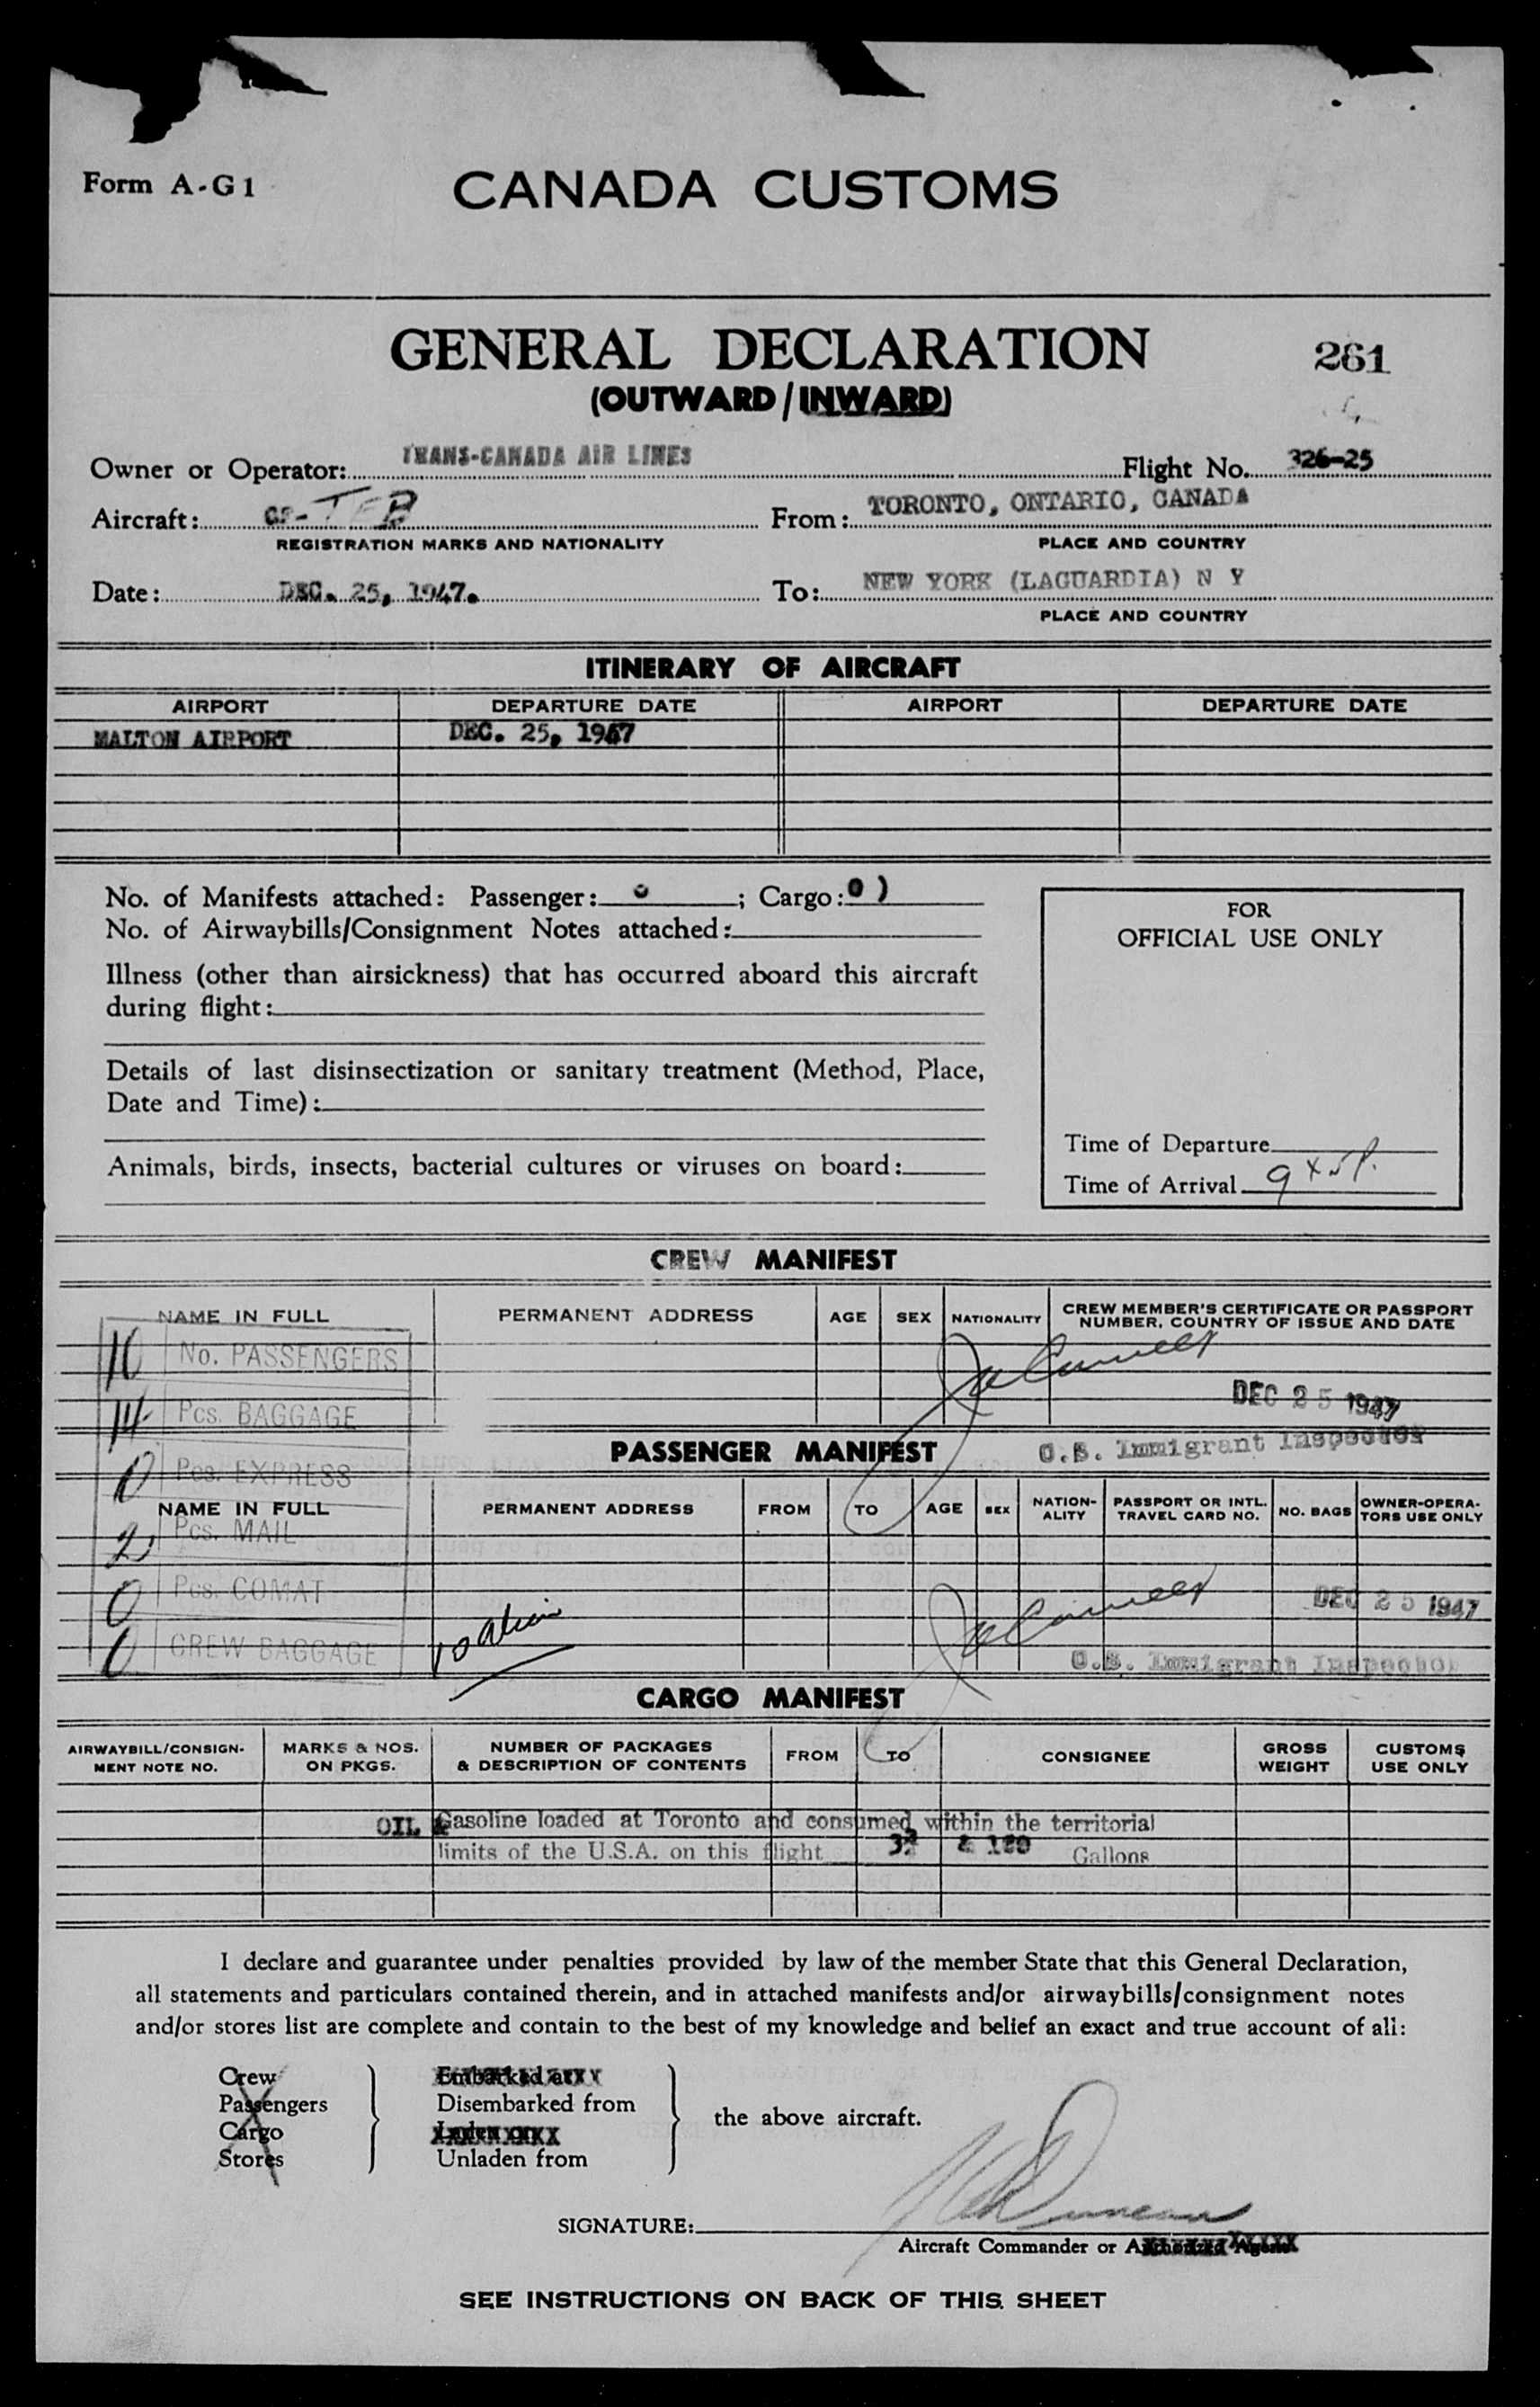 Form A-G1
CANADA CUSTOMS
GENERAL DECLARATION
261
(OUTWARD/INWARD)
Owner or Operator: TRANS-CANADA AIR LINES Flight No. 326-25
Aircraft: CF-TEB From: TORONTO, ONTARIO, CANADA
REGISTRATION MARKS AND NATIONALITY PLACE AND COUNTRY
Date: DEC. 25, 1947. To: NEW YORK (LAGUARDIA) N Y
PLACE AND COUNTRY
ITINERARY OF AIRCRAFT
AIRPORT DEPARTURE DATE AIRPORT DEPARTURE DATE
MALTON AIRPORT DEC. 25, 1947
No. of Manifests attached: Passenger: 0 ; Cargo: 0 )
No. of Airwaybills/Consignment Notes attached:
Illness (other than airsickness) that has occurred aboard this aircraft
during flight:
Details of last disinsectization or sanitary treatment (Method, Place,
Date and Time):
Animals, birds, insects, bacterial cultures or viruses on board:
FOR
OFFICIAL USE ONLY
Time of Departure
Time of Arrival
CREW MANIFEST
NAME IN FULL PERMANENT ADDRESS AGE SEX NATIONALITY CREW MEMBER'S CERTIFICATE OR PASSPORT
NUMBER, COUNTRY OF ISSUE AND DATE
10 No. PASSENGERS
14 Pcs. BAGGAGE
DEC 25 1947
U.S. Immigrant Inspector
PASSENGER MANIFEST
0 Pcs. EXPRESS
NAME IN FULL PERMANENT ADDRESS FROM TO AGE SEX NATION-
ALITY PASSPORT OR INTL.
TRAVEL CARD NO. NO. BAGS OWNER-OPERA-
TORS USE ONLY
2 Pcs. MAIL
0 Pcs. COMAT
0 CREW BAGGAGE
10 alien
DEC 25 1947
U.S. Immigrant Inspector
CARGO MANIFEST
AIRWAYBILL/CONSIGN-
MENT NOTE NO. MARKS & NOS.
ON PKGS. NUMBER OF PACKAGES
& DESCRIPTION OF CONTENTS FROM TO CONSIGNEE GROSS
WEIGHT CUSTOMS
USE ONLY
OIL & Gasoline loaded at Toronto and consumed within the territorial
limits of the U.S.A. on this flight & Gallons
I declare and guarantee under penalties provided by law of the member State that this General Declaration,
all statements and particulars contained therein, and in attached manifests and/or airwaybills/consignment notes
and/or stores list are complete and contain to the best of my knowledge and belief an exact and true account of all:
Crew
Passengers
Cargo
Stores
Embarked at
Disembarked from
Laden on
Unladen from
the above aircraft.
SIGNATURE: Duncan
Aircraft Commander or Authorized Agent
SEE INSTRUCTIONS ON BACK OF THIS SHEET